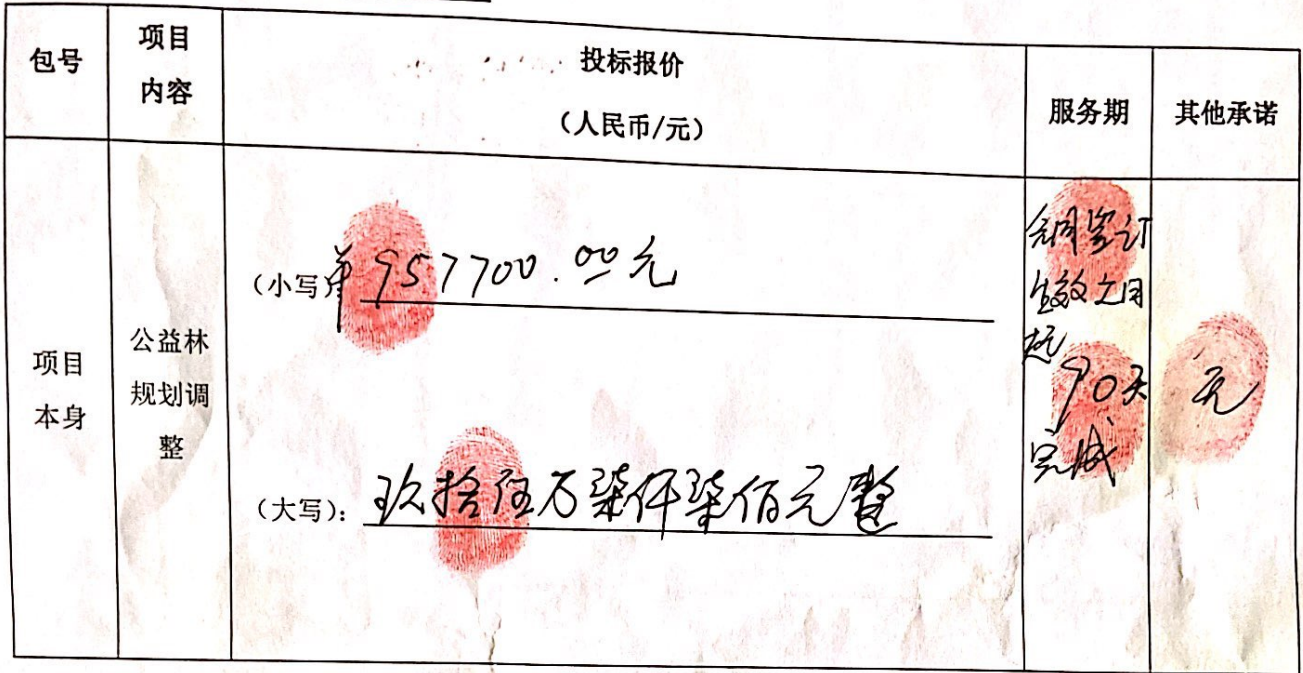 包号
项目
内容
投标报价
（人民币/元）
服务期
其他承诺
项目
本身
公益林
规划调
整
（小写）：￥957700.00元
（大写）：玖拾伍万柒仟柒佰元整
合同签订
生效之日
起
90天
完成
无